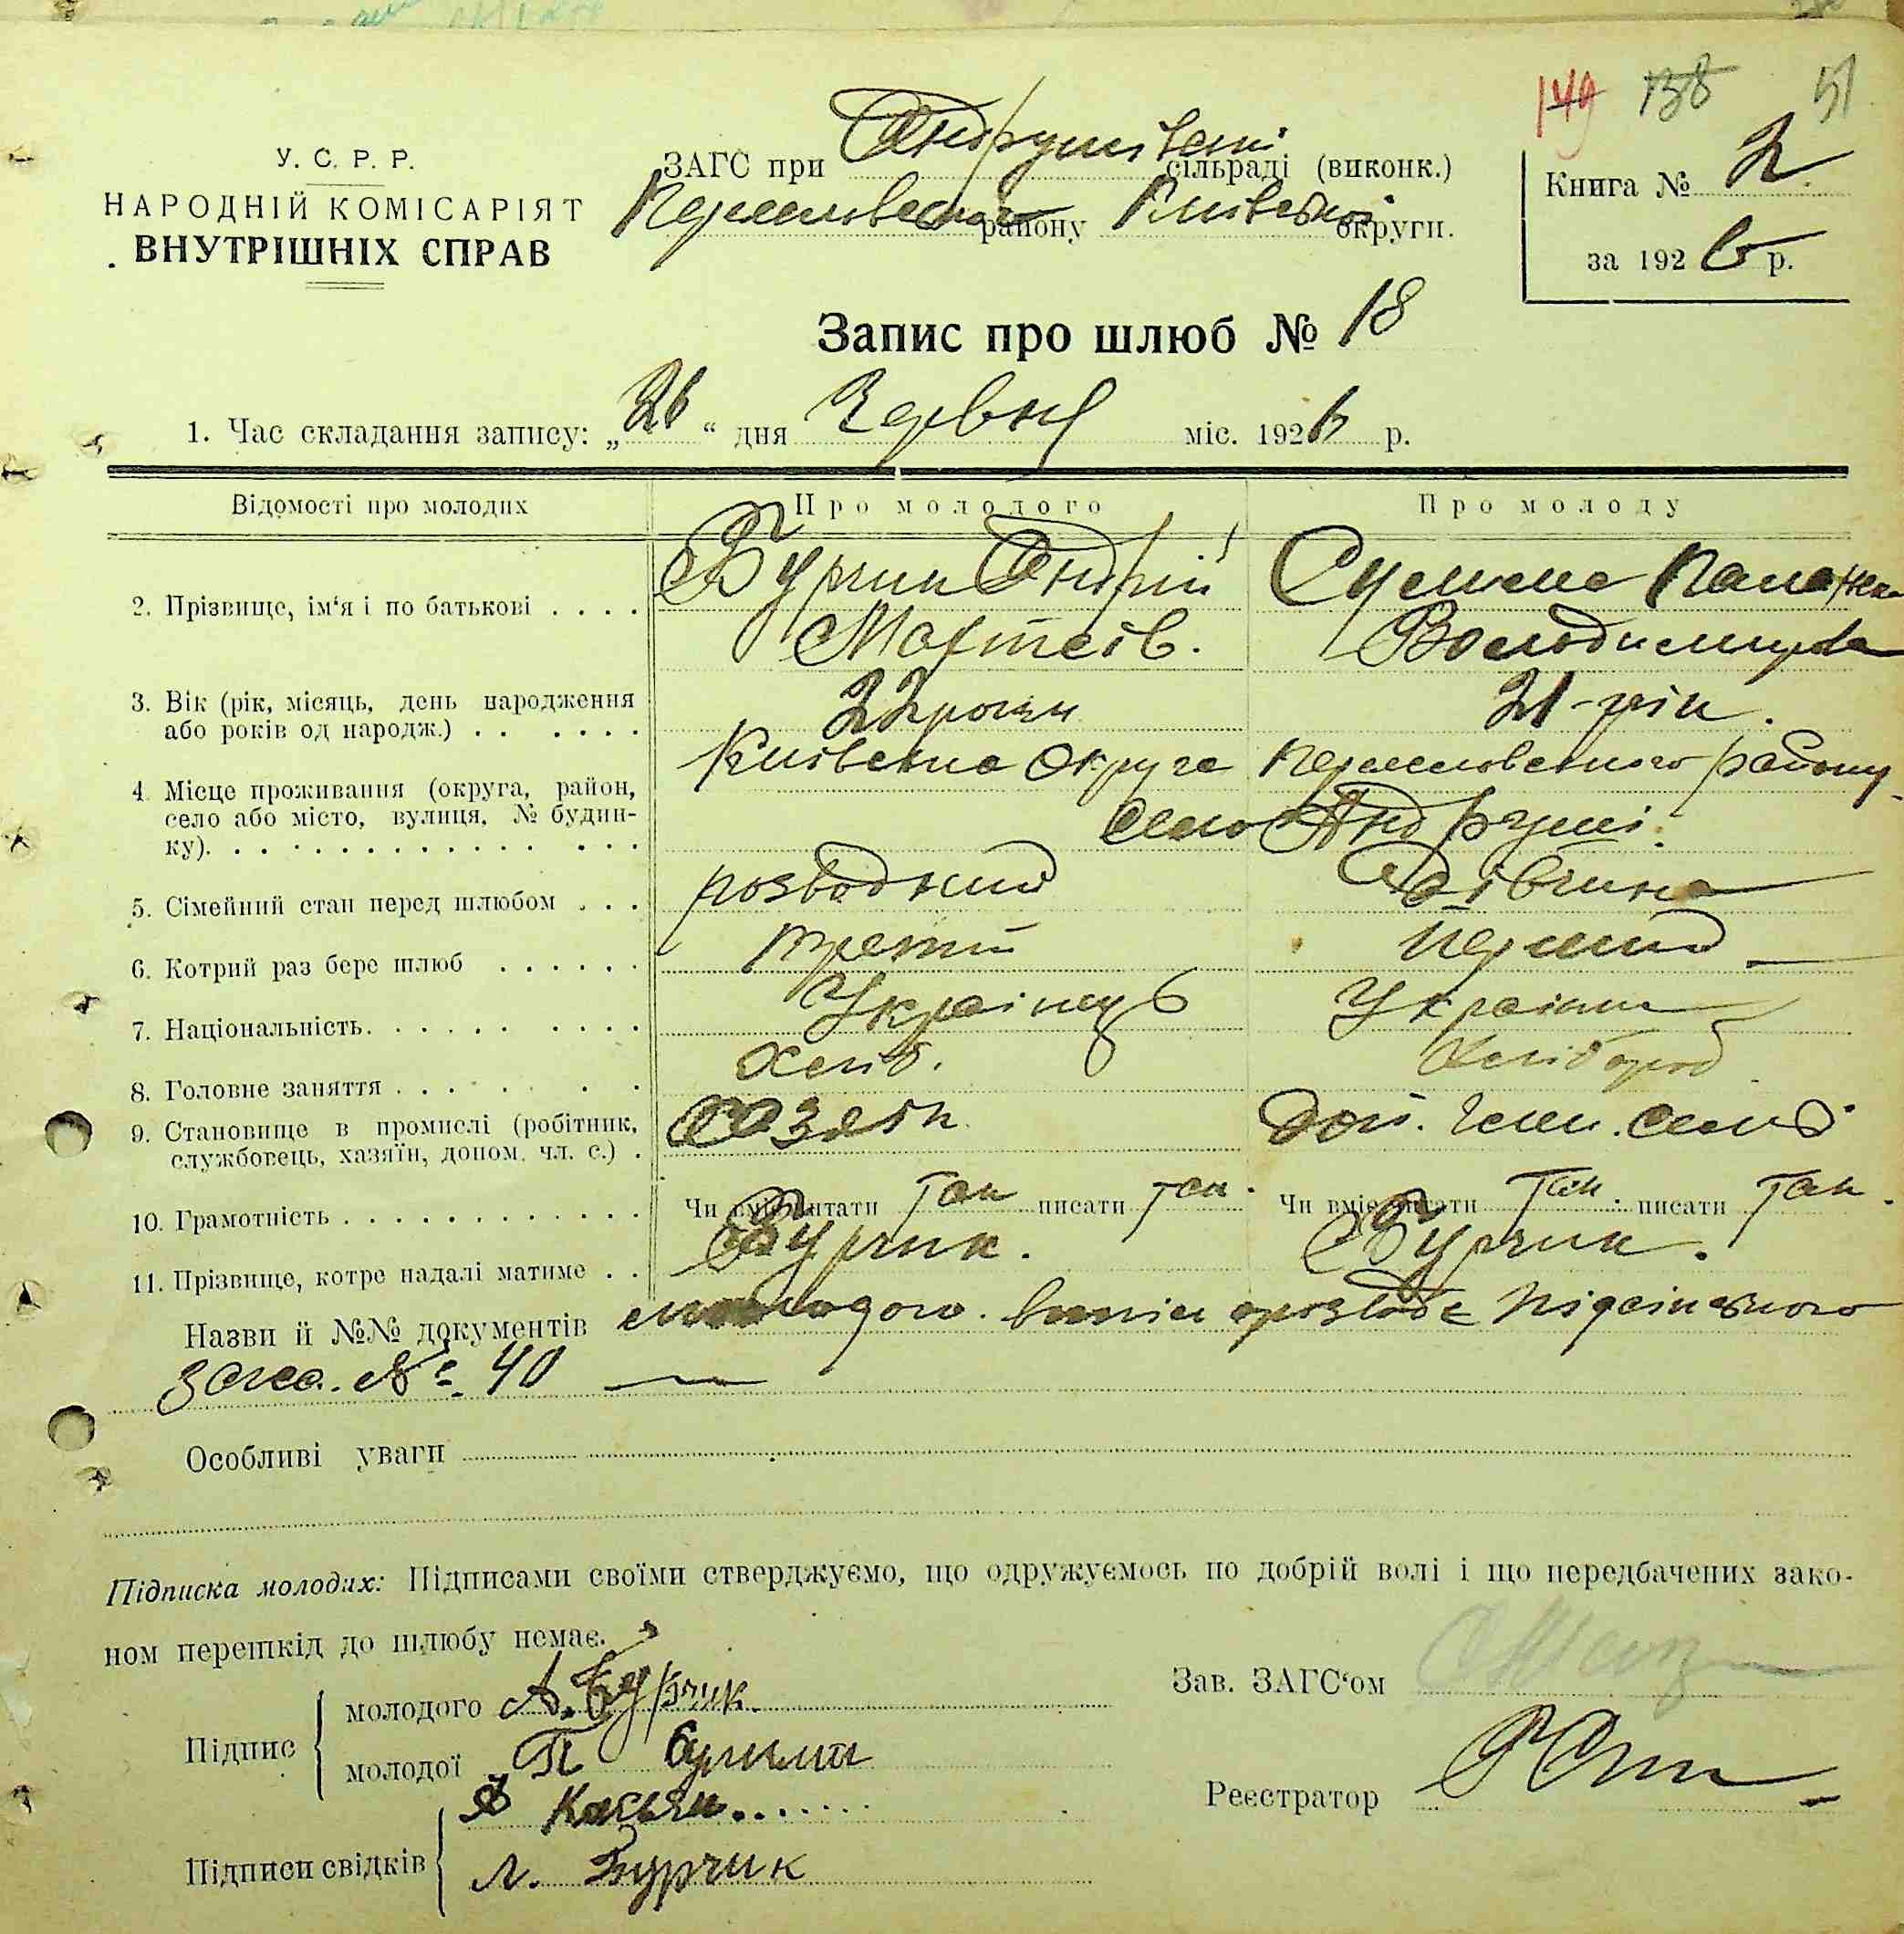 149 138 51
У. С. Р. Р.
НАРОДНІЙ КОМІСАРІЯТ
ВНУТРІШНІХ СПРАВ
ЗАГС при Андрушівскі сільраді (виконк.)
району Київської округи.
Книга № 2
за 1926 р.
Запис про шлюб № 18
1. Час складання запису: „26“ дня Червня міс. 1926 р.
Відомості про молодих Про молодого Про молоду
2. Прізвище, ім‘я і по батькові . . . . Бурчик Андрій
Володимирова
3. Вік (рік, місяць, день народження
або років од народж.) . . . . . . 22 роки 21-рік.
4. Місце проживання (округа, район,
село або місто, вулиця, № будин-
ку). Київска Округа району
село Андруші.
5. Сімейний стан перед шлюбом . . . розводний Дівчина
6. Котрий раз бере шлюб . . . . . . третій перший
7. Національність. Українець Українка
8. Головне заняття Хліб. Хлібороб
9. Становище в промислі (робітник,
службовець, хазяїн, допом. чл. с.) . Хозяїн доп. член. семї
10. Грамотність Чи вміє читати Так писати Так. Чи вміє читати Так. писати Так.
11. Прізвище, котре надалі матиме . . Бурчик. Бурчик.
Назви й №№ документів молодого.
загса. № 40
Особливі уваги
Підписка молодих: Підписами своїми стверджуємо, що одружуємось по добрій волі і що передбачених зако-
ном перешкід до шлюбу немає.
Зав. ЗАГС‘ом
Підпис
молодого А. Бурчик.
молодої П
Реєстратор
Підписи свідків
Касьян
Л. Бурчик